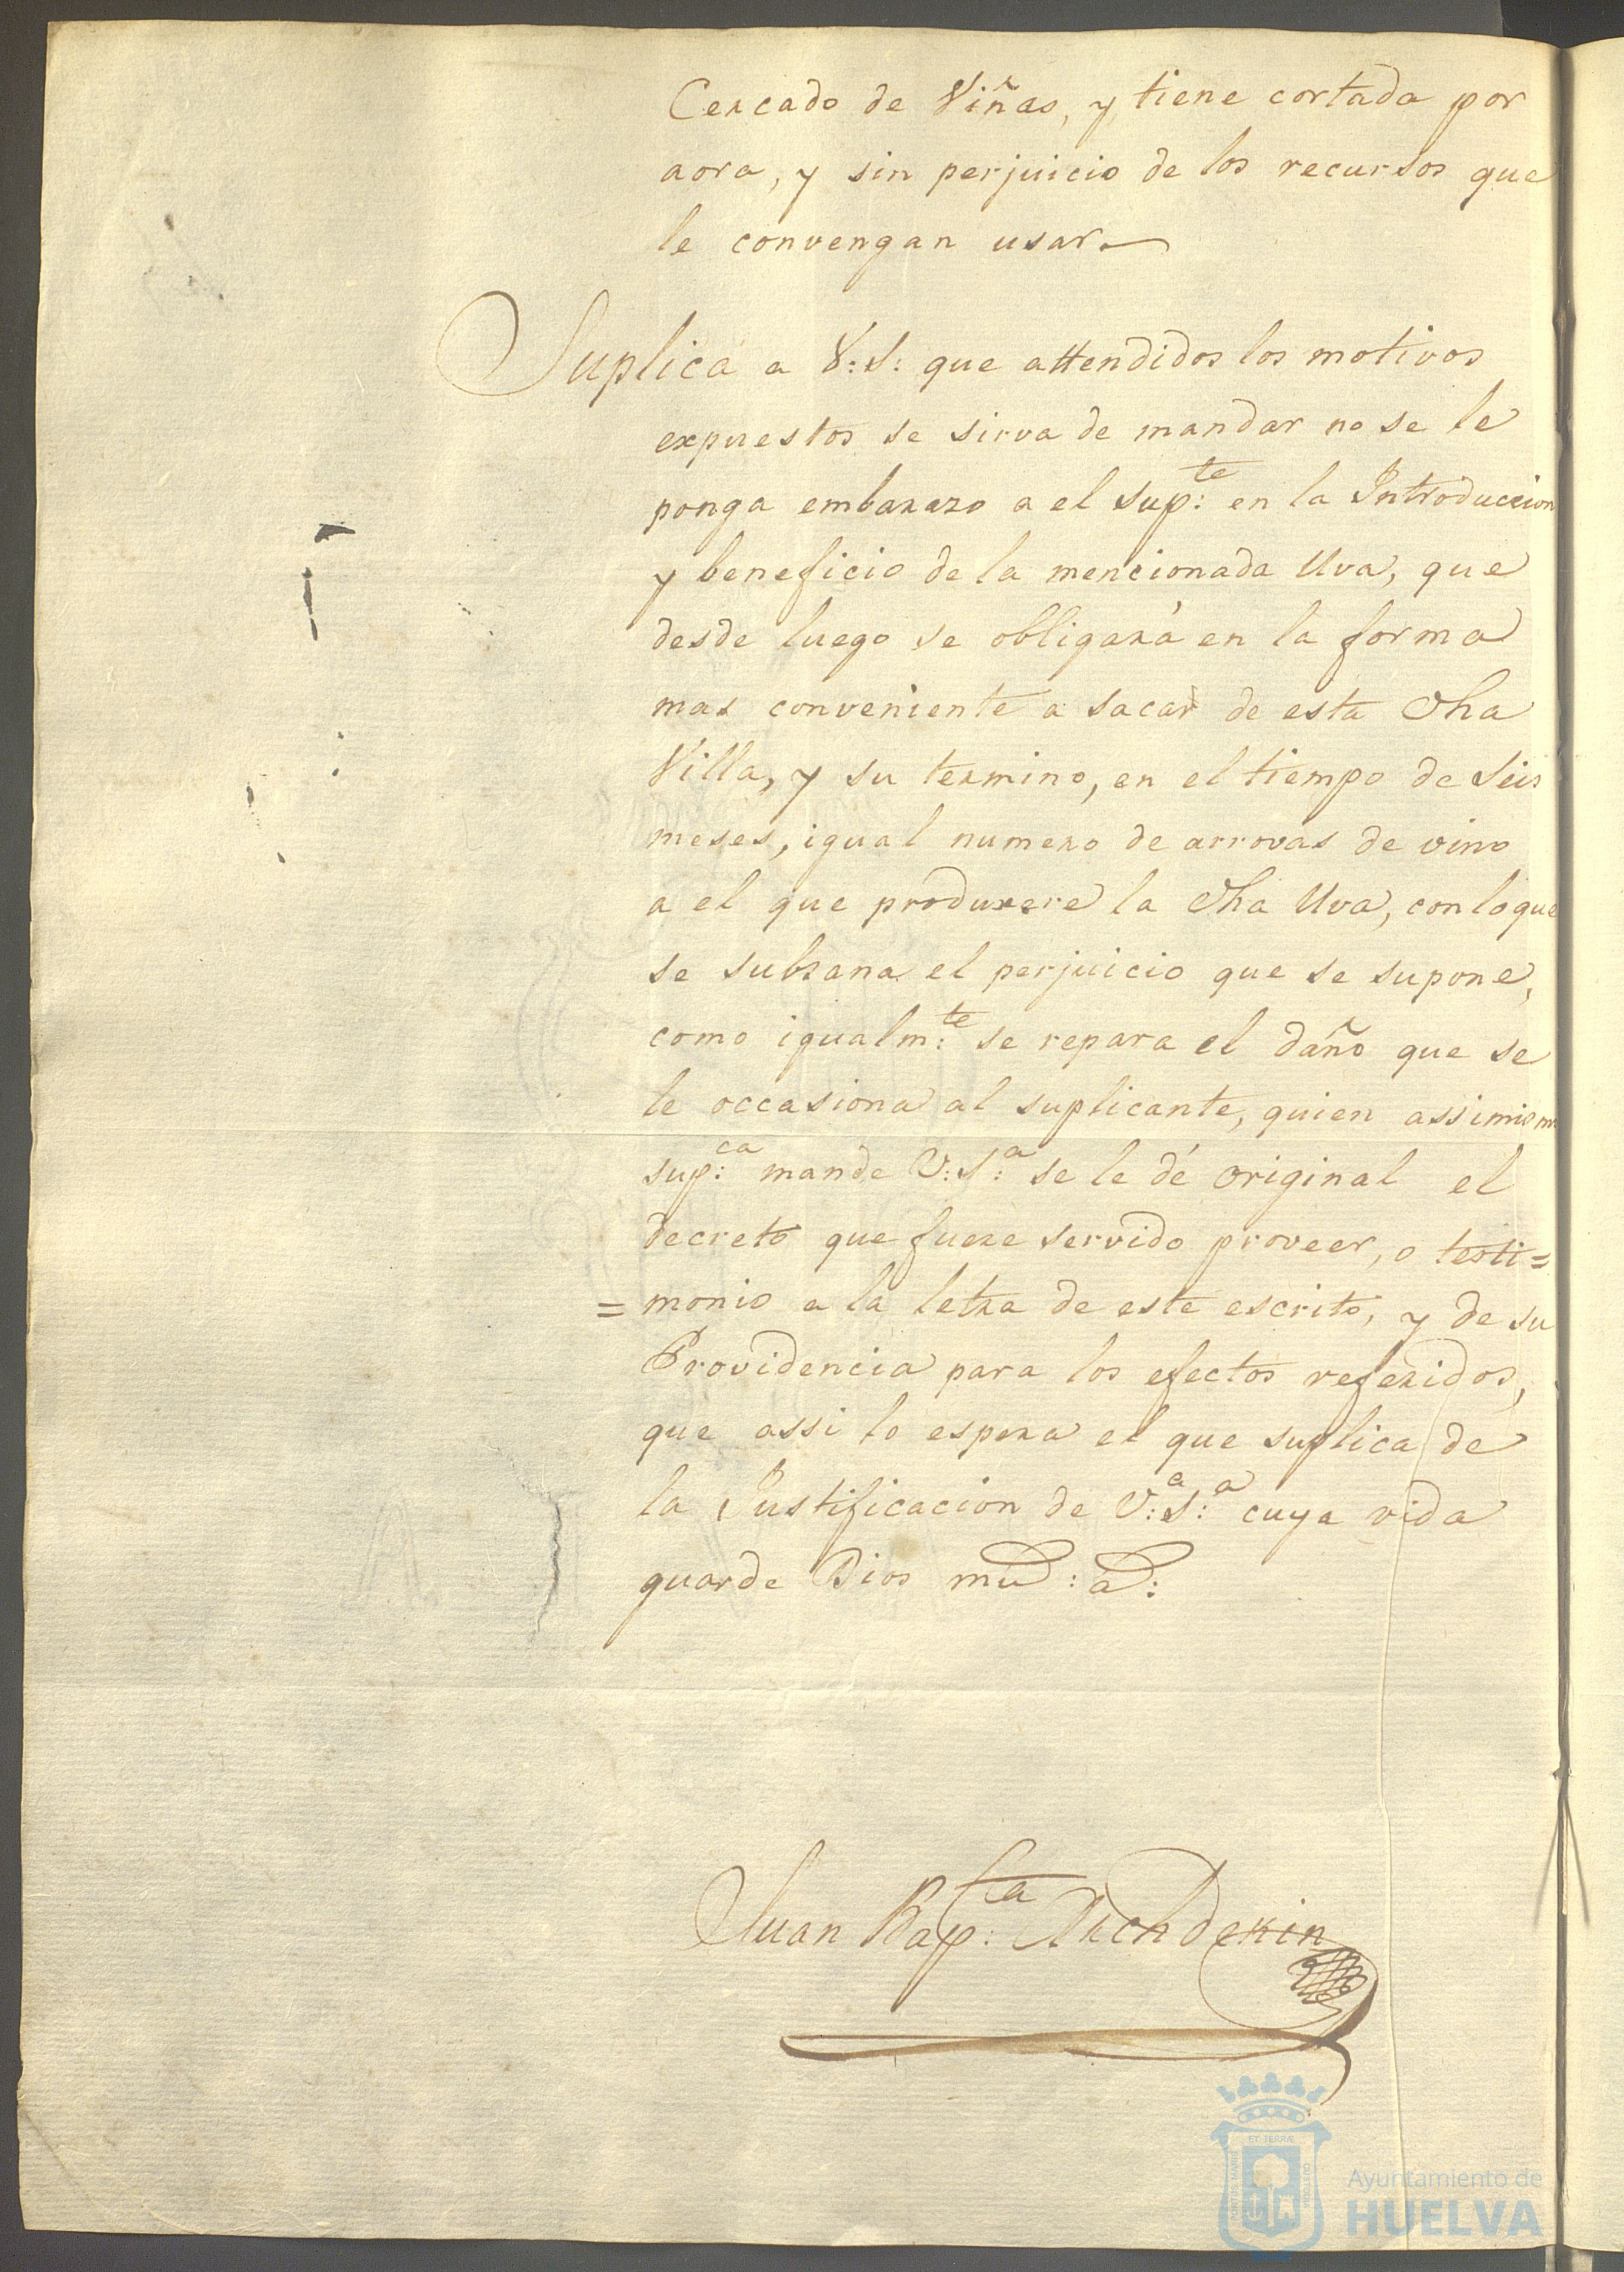 Cercado de Viñas, y tiene cortada por
aora, y sin perjuicio de los recursos que
le convengan usar
Suplica a V:S: que attendidos los motivos
expuestos se sirva de mandar no se le
ponga embarazo a el sup:te en la Introduccion
y beneficio de la mencionada Uva, que
desde luego se obligará en la forma
mas conveniente a sacar de esta dha
Villa, y su termino, en el tiempo de seis
meses, igual numero de arrovas de vino
a el que produxere la dha Uva, con lo que
se subsana el perjuicio que se supone,
como igualm:te se repara el daño que se
le occasiona al suplicante, quien assimism
sup:ca mande V:S:a se le dé original el
decreto que fuere servido proveer, o testi=
=monio a la letra de este escrito, y de su
Providencia para los efectos referidos,
que assi lo espera el que suplica de
la Justificacion de V:a S:a cuya vida
guarde Dios mu:d a:
Juan Bap:ta
ET TERRÆ
Ayuntamiento de
HUELVA